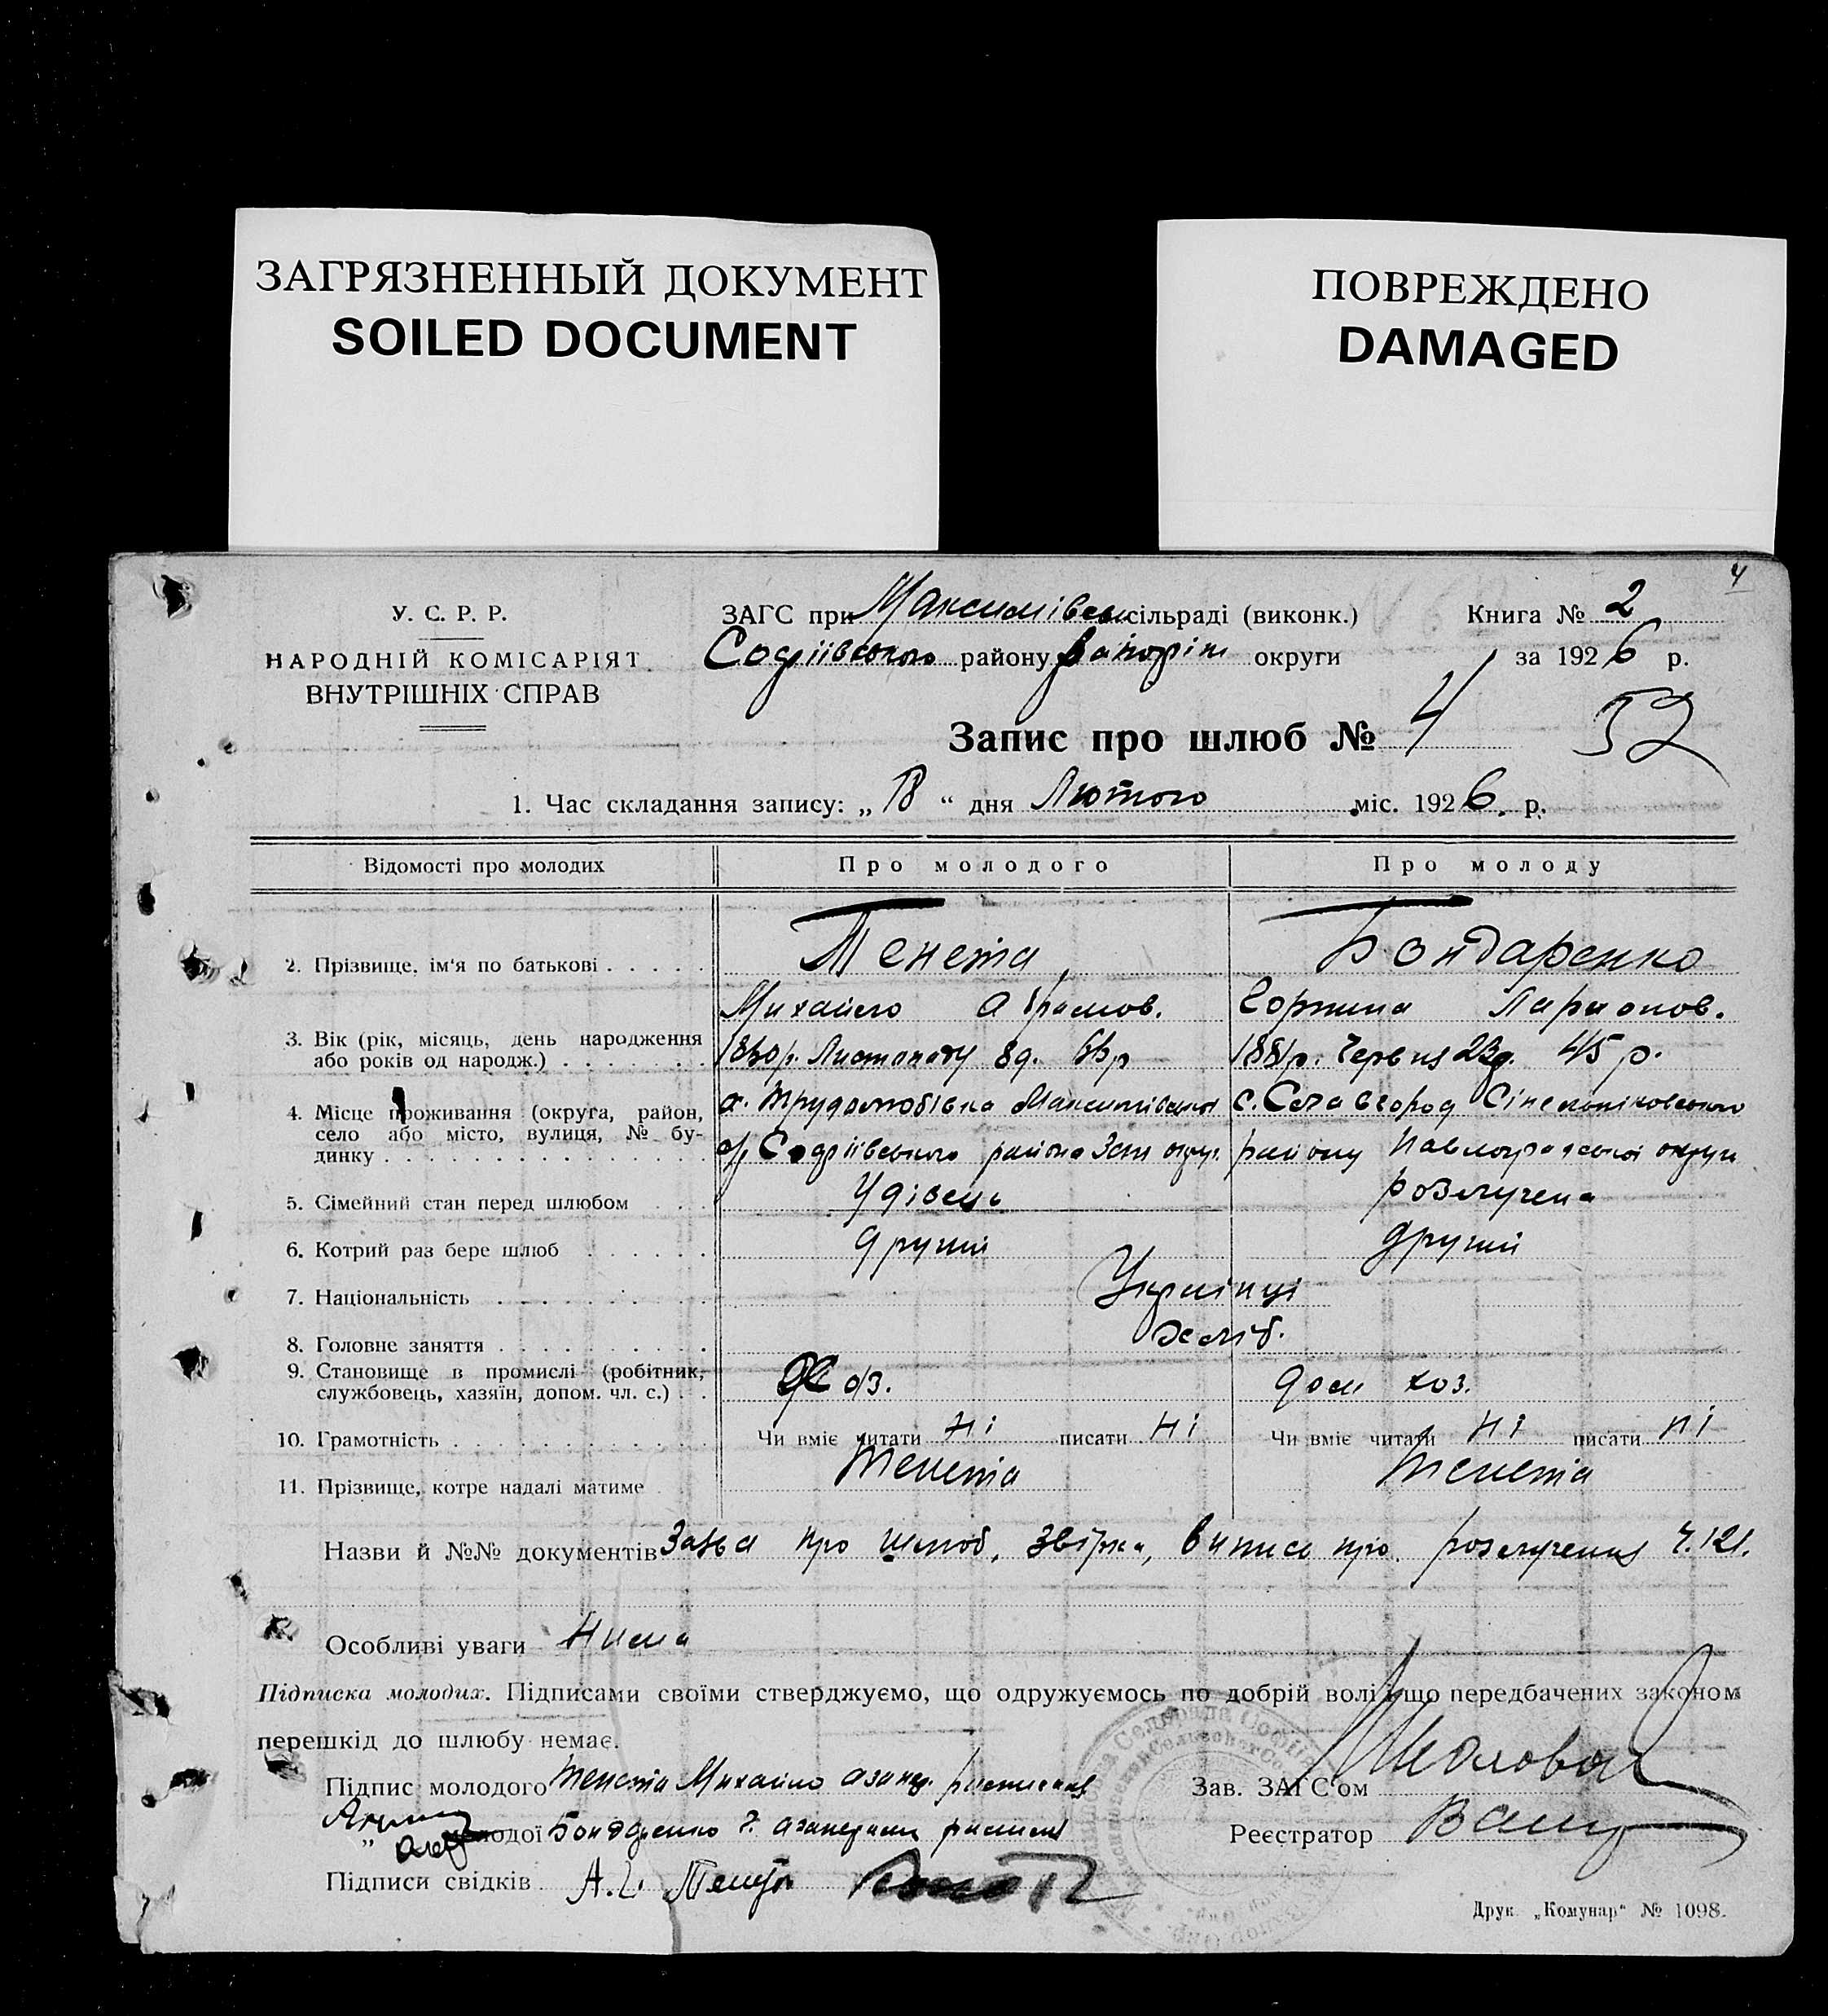 ЗАГРЯЗНЕННЫЙ ДОКУМЕНТ
SOILED DOCUMENT
ПОВРЕЖДЕНО
DAMAGED
4
У. С. Р. Р.
НАРОДНІЙ КОМІСАРІЯТ
ВНУТРІШНІХ СПРАВ
ЗАГС при Максимівськ сільраді (виконк.) Книга № 2
Софіівського району округи за 1926 р.
Запис про шлюб № 4
52
1. Час складання запису: „18“ дня Лютого міс. 1926 р.
Відомості про молодих Про молодого Про молоду
2. Прізвище, ім'я по батькові Тенета Бондаренко
Михайло Абрамов. Ларионов.
3. Вік (рік, місяць, день народження або років од народж.) Листопаду 8д. 1881р. Червня 23д. 45 р.
4. Місце проживання (округа, район, село або місто, вулиця, № будинку х. Трудолюбівка Максимівської с. Славгород Сінельниковського
Софіівського района Зап округ. району Павлоградської округи
5. Сімейний стан перед шлюбом Удівець розлучена
6. Котрий раз бере шлюб другий другий
7. Національність Українці
8. Головне заняття хліб.
9. Становище в промислі (робітник, службовець, хазяїн, допом. чл. с.) хоз. дом хоз.
10. Грамотність Чи вміє читати Ні писати Ні Чи вміє читати Ні писати Ні
11. Прізвище, котре надалі матиме Тенета Тенета
Назви й №№ документів Заява про шлюб, звірка, випись про розлучення Ч.121.
Особливі уваги Нима
Підписка молодих. Підписами своїми стверджуємо, що одружуємось по добрій волі і що передбачених законом
перешкід до шлюбу немає.
Підпис молодого Тенета Михайло
Зав. ЗАГС'ом
„ молодої Бондаренко
Реєстратор
Підписи свідків А.
Друк. „Комунар“ № 1098.